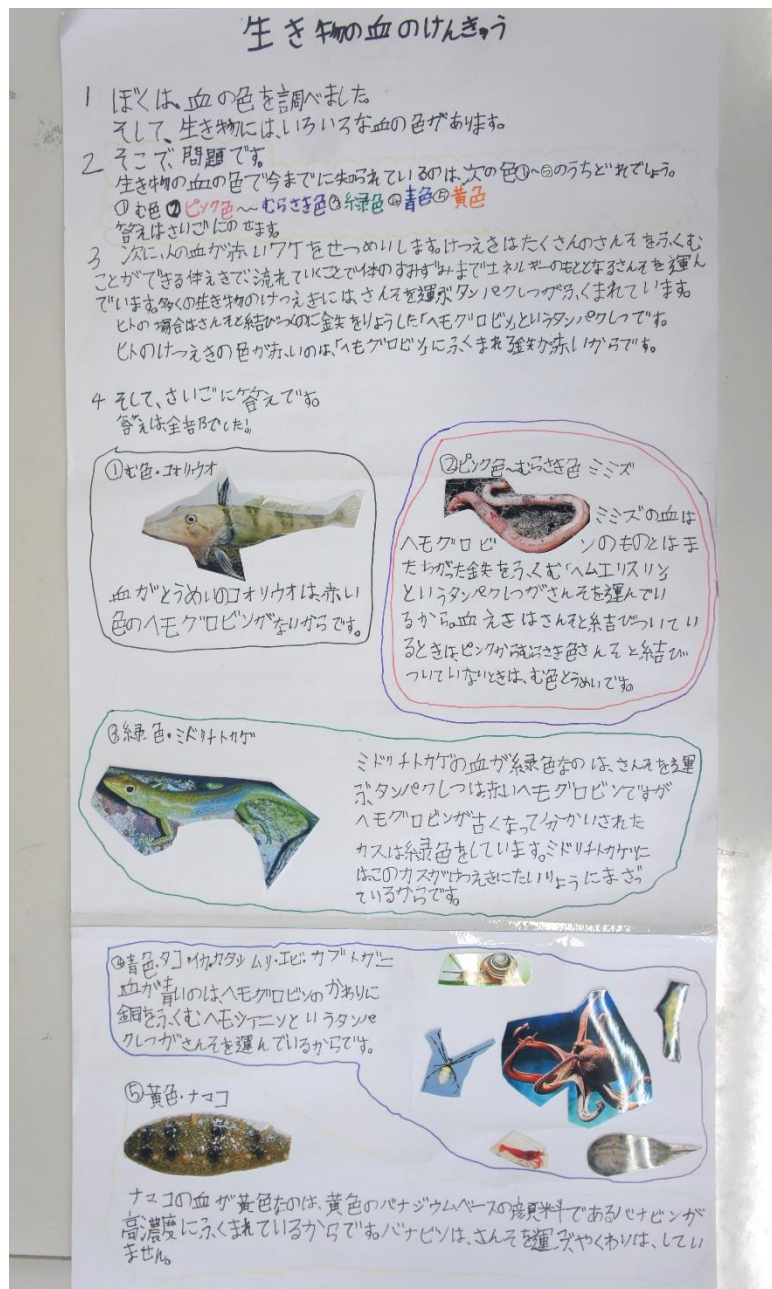 生き物の血のけんきゅう
1 ぼくは、血の色を調べました。
そして、生き物には、いろいろな血の色があります。
2 そこで、問題です。
生き物の血の色で今までに知られているのは、次の色①〜⑤のうちどれでしょう。
①む色②ピンク色〜むらさき色③緑色④青色⑤黄色
答えはさいごにのせます。
3 次に、人の血が赤いワケをせつめいします。けつえきはたくさんのさんそをふくむ
ことができる体えきで、流れていくことで体のすみずみまでエネルギーのもととなるさんそを運ん
でいます。多くの生き物のけつえきには、さんそを運ぶタンパクしつがふくまれています。
ヒトの場合はさんそと結びつくのに鉄をりようした「ヘモグロビン」というタンパクしつです。
ヒトのけつえきの色が赤いのは、「ヘモグロビン」にふくまれる鉄が赤いからです。
4 そして、さいごに答えです。
答えは全部でした!
①む色・コオリウオ
血がとうめいのコオリウオは、赤い
色のヘモグロビンがないからです。
②ピンク色〜むらさき色 ミミズ
ミミズの血は
ヘモグロビンのものとはま
たちがった鉄をふくむ「ヘムエリスリン」
というタンパクしつがさんそを運んでい
るから。血えきはさんそと結びついてい
るときは、ピンクからむらさき色さんそと結び
ついていないときは、む色とうめいです。
③緑色・ミドリチトカゲ
ミドリチトカゲの血が緑色なのは、さんそを運
ぶタンパクしつは赤いヘモグロビンですが
ヘモグロビンが古くなって分かいされた
カスは緑色をしています。ミドリチトカゲに
はこのカスがけつえきにたいりょうにまざっ
ているからです。
④青色・タコ・イカ・カタツムリ・エビ・カブトガニ
血が青いのは、ヘモグロビンのかわりに
銅をふくむヘモシアニンというタンパ
クしつがさんそを運んでいるからです。
⑤黄色・ナマコ
ナマコの血が黄色なのは、黄色のバナジウムベースの顔料であるバナビンが
高濃度にふくまれているからです。バナビンは、さんそを運ぶやくわりは、してい
ません。